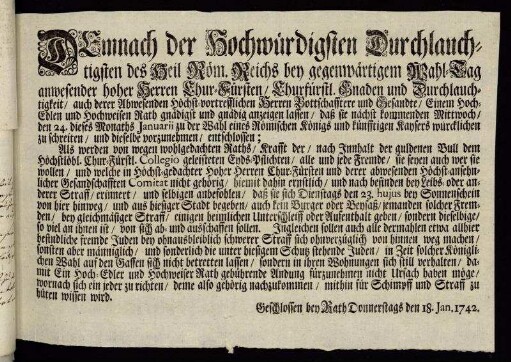 DEmnach der Hochwürdigsten Durchlauch-
tigsten des Heil Röm. Reichs bey gegenwärtigem Wahl-Tag
anwesender hoher Herren Chur-Fürsten / Churfürstl. Gnaden und Durchlauch-
tigkeit / auch derer Abwesenden Höchst-vortrefflichen Herren Bottschafftere und Gesandte / Einem Hoch-
Edlen und Hochweisen Rath gnädigst und gnädig anzeigen lassen / daß sie nächst kommenden Mittwoch /
den 24. dieses Monaths Januarii zu der Wahl eines Römischen Königs und künfftigen Kaysers würcklichen
zu schreiten / und dieselbe vorzunehmen / entschlossen ;
Als werden von wegen wohlgedachten Raths / Krafft der / nach Innhalt der guldenen Bull dem
Höchstlöbl. Chur-Fürstl. Collegio geleisteten Eyds-Pflichten / alle und jede Fremde / sie seyen auch wer sie
wollen / und welche in Höchst-gedachter Hoher Herren Chur-Fürsten und derer abwesenden Höchst-ansehn-
licher Gesandschafften Comitat nicht gehörig / hiemit dahin ernstlich / und nach befinden bey Leibs- oder an-
derer Straff / erinnert / und selbigen anbefohlen / daß sie sich Dienstags den 23. hujus bey Sonnenschein
von hier hinweg / und aus hiesiger Stadt begeben / auch kein Burger oder Beysaß / jemanden solcher Frem-
den / bey gleichmäßiger Straff / einigen heimlichen Unterschleiff oder Aufenthalt geben / sondern dieselbige /
so viel an ihnen ist / von sich ab- und ausschaffen sollen. Ingleichen sollen auch alle dermahlen etwa allhier
befindliche fremde Juden bey ohnausbleiblich schwerer Straff sich ohnverzüglich von hinnen weg machen /
sonsten aber männiglich / und sonderlich die unter hiesigem Schutz stehende Juden / in Zeit solcher Königli-
chen Wahl auf den Gassen sich nicht betretten lassen / sondern in ihren Wohnungen sich still verhalten / da-
mit Ein Hoch-Edler und Hochweiser Rath gebührende Andung fürzunehmen nicht Ursach haben möge /
wornach sich ein jeder zu richten / deme also gehörig nachzukommen / mithin für Schimpff und Straff zu
hüten wissen wird.
Geschlossen bey Rath Donnerstags den 18. Jan. 1742.